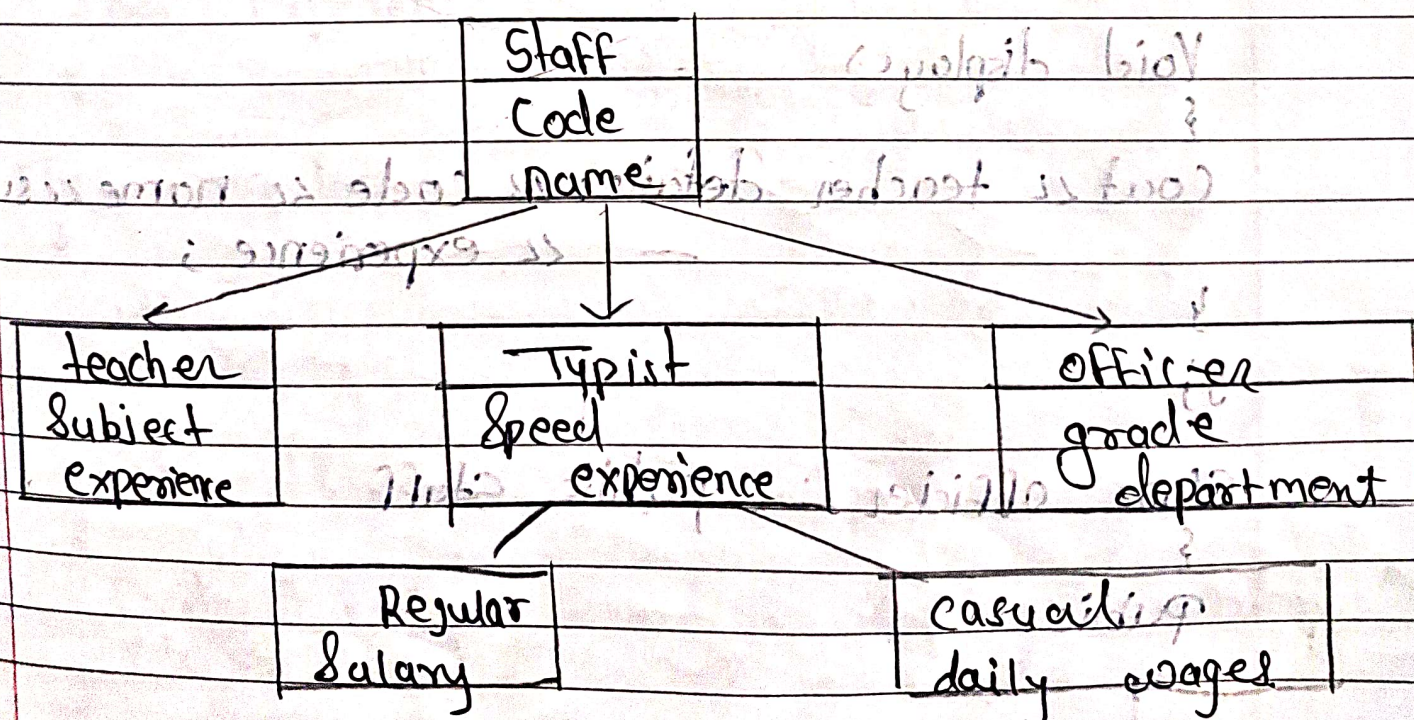 Staff
Code
name
teacher
Subject
experience
Typist
Speed
experience
officer
grade
department
Regular
Salary
casual
daily wages